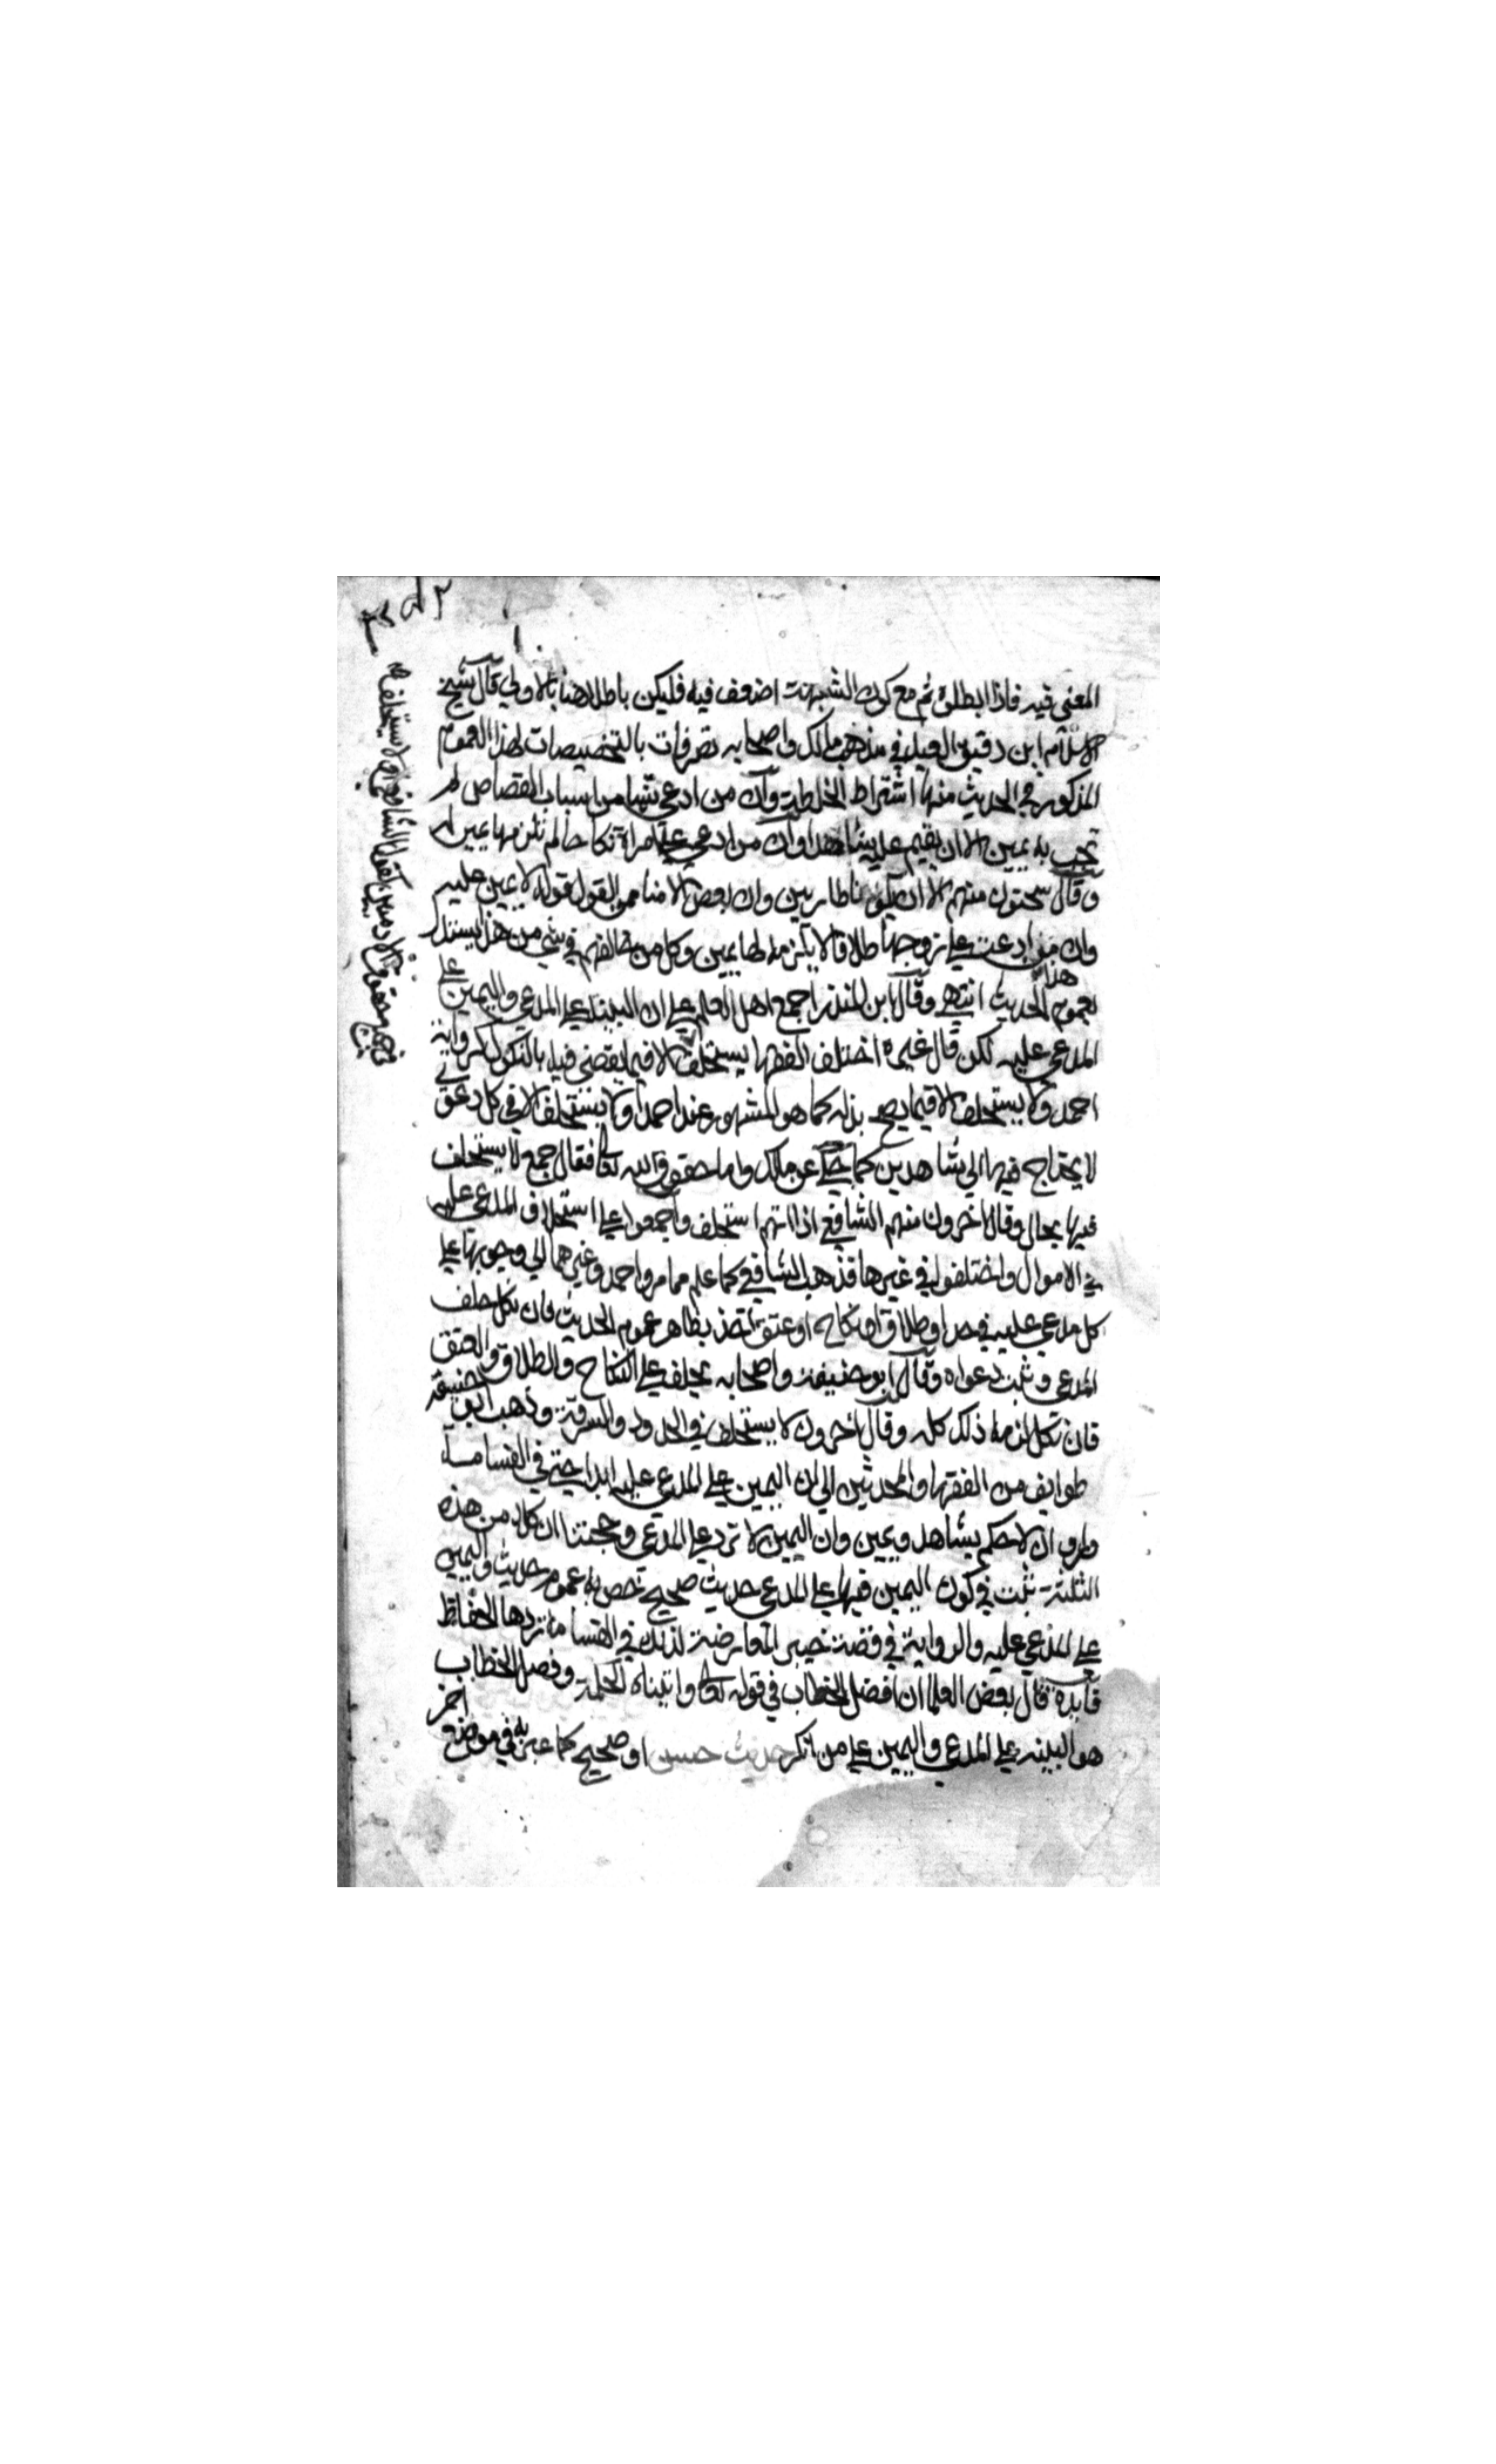 المعنى فيه فاذا ابطلوه ثم مع كون الشبهة اضعف فيه فليكن باطلا هنا بالاولى قال شيخ
الاسلام ابن دقيق العيد في مذهب مالك واصحابه تصرفات بالتخصيصات لهذا العموم
المذكور في الحديث منها اشتراط الخلطة وان من ادعى شيا من اسباب القصاص لم
تجب به يمين الا ان يقيم عليه شاهدا وان من ادعى على امراة نكاحا لم يلزمها يمين له
وقال سحنون منهم الا ان يكونا طاريين وان بعض الامنا ممن القول قوله لا يمين عليه
وان من ادعت على زوجها طلاقا لا يلزمه لها يمين وكل من خالفهم في شي من هذا يستدل
بعموم هذا الحديث انتهى وقال ابن المنذر اجمع اهل العلم على ان البينة على المدعي واليمين على
المدعى عليه لكن قال غيره اختلف الفقها يستحلف الا فيما يقضى فيه بالنكول كرواية
احمد ولا يستحلف الا فيما يصح بذله كما هو المشهور عند احمد او لا يستحلف الا في كل دعوى
لا يحتاج فيها الى شاهدين كما حكي عن ملك واما حقوق الله تعالى فقال جمع لا يستحلف
فيها بحال وقال اخرون منهم الشافعي اذا اتهم استحلف واجمعوا على استحلاف المدعى عليه
في الاموال واختلفوا في غيرها فذهب الشافعي كما علم مما مر واحمد وغيرهما الى وجوبها على
كل مدعى عليه في حد او طلاق او نكاح او عتق اخذ بظاهر عموم الحديث فان نكل حلف
المدعي وثبت دعواه وقال ابو حنيفة واصحابه يحلف على النكاح والطلاق والعتق
فان نكل لزمه ذلك كله وقال اخرون لا يستحلف في الحدود والسرقة وذهب ابو حنيفة
طوايف من الفقها والمحدثين الى ان اليمين على المدعى عليه ابدا حتى في القسامة
وراو ان لا حكم بشاهد ويمين وان اليمين لا ترد على المدعي وحجتنا ان كلا من هذه
الثلثة ثبت في كون اليمين فيها على المدعي حديث صحيح تخص به عموم حديث واليمين
على المدعى عليه والرواية في قصة خيبر المعارضة لذلك في القسامة ردها الحفاظ
فايدة قال بعض العلما ان فصل الخطاب في قوله تعالى واتيناه الحكمة وفصل الخطاب
هو البينة على المدعي واليمين على من انكر حديث حسن او صحيح كما عبر به في موضع اخر